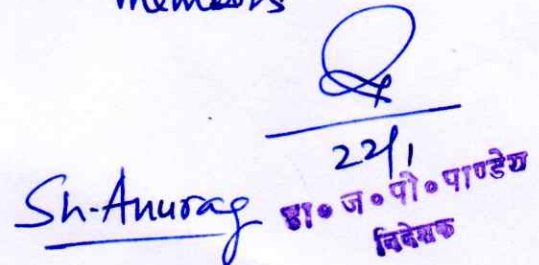 members
22/1
Sh-Anurag
डा॰ ज॰ पी॰ पाण्डेय
निदेशक